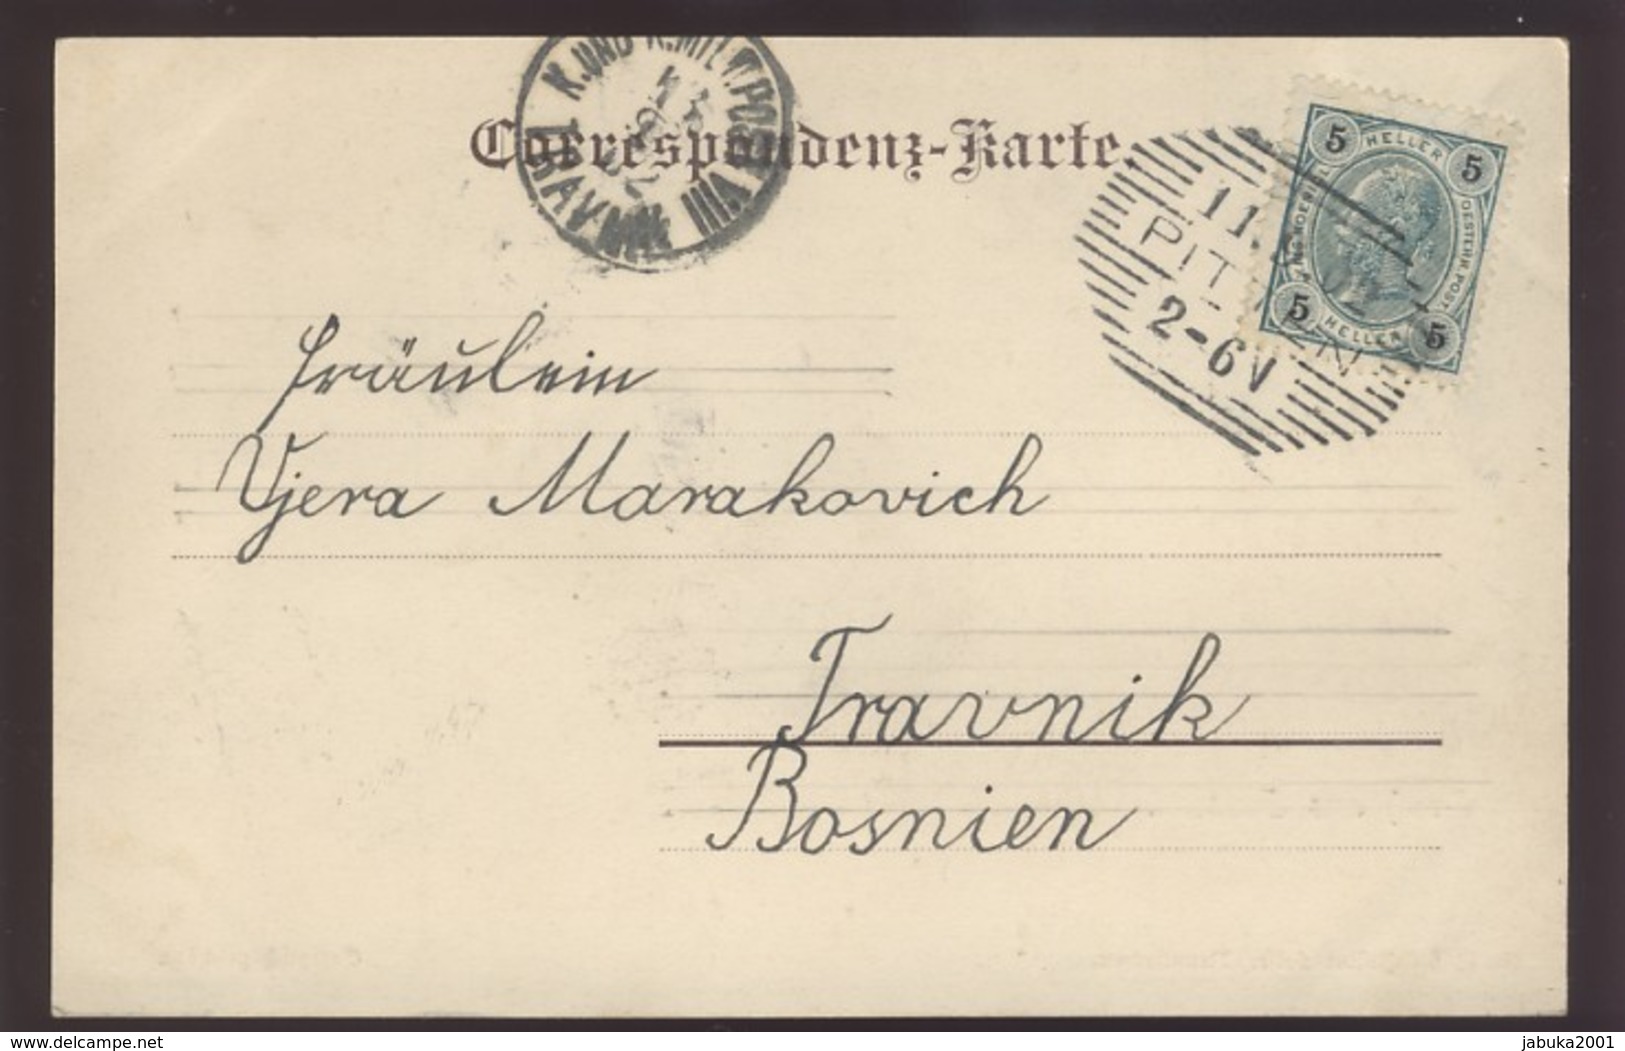 Correspondenz-Karte
K. UND K. MILIT. POST
TRAVNIK
5 HELLER 5
OESTERR. POST
5 HELLER 5
11.
2-6V
Fräulein
Vjera Marakovich
Travnik
Bosnien
delcampe.net
jabuka2001